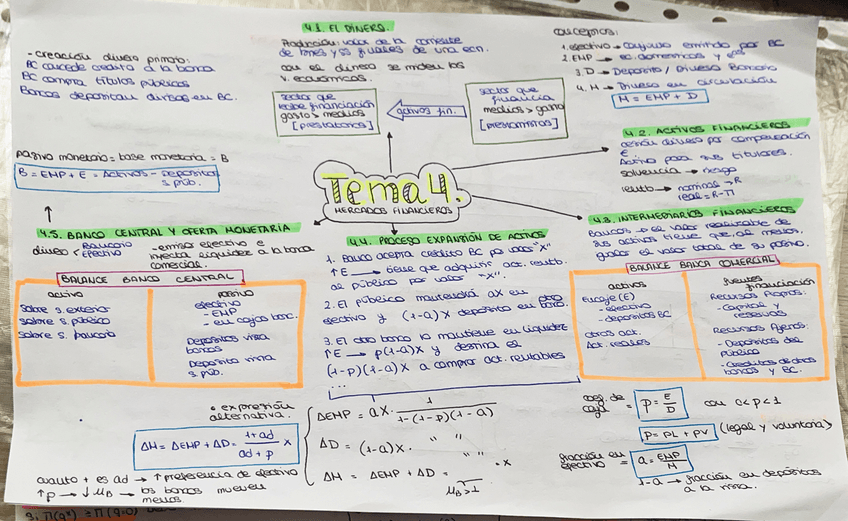 4.1. EL DINERO.
Producción: valor de la corriente
de bienes y ss finales de una ecn.
con el dinero se miden las
v. económicas.
sector que
recibe financiación
gasto > medios
[prestatarios]
activos fin.
sector que
financia
medios > gasto
[prestamistas]
conceptos:
1. efectivo → conjunto emitido por BC
2. EMP → ec. domésticas y
3. D → Depósito / Dinero Bancario
4. M → Dinero en circulación
M = EMP + D
- creación dinero primario:
BC concede crédito a la banca
BC compra títulos públicos
Bancos depositan divisas en BC.
Pasivo monetario = base monetaria = B
B = EMP + E = Activos - Depósitos
s. púb.
Tema 4.
MERCADOS FINANCIEROS
4.2. ACTIVOS FINANCIEROS
dinero por compensación
E
Activo para sus titulares.
solvencia → riesgo
rentb → nominal → R
real = R - π
4.3. INTERMEDIARIOS FINANCIEROS
Bancos → el valor realizable de
sus activos tiene que al menos,
igualar el valor total de su pasivo.
BALANCE BANCA COMERCIAL
activos
Encaje (E)
- efectivo
- depósitos BC
otros act.
Act. reales
fuentes
financiación
Recursos Propios:
- Capital y
reservas
Recursos Ajenos:
- Depósitos del
público
- Créditos de otros
bancos y BC.
4.5. BANCO CENTRAL Y OFERTA MONETARIA
dinero < Bancario
Efectivo
- emisor efectivo e
inyecta liquidez a la banca
comercial.
BALANCE BANCO CENTRAL
activo
sobre s. exterior
sobre s. público
sobre s. bancario
pasivo
efectivo
- EMP
- en cajas banc.
Depósitos vista
bancos
Depósitos vista
s. púb.
4.4. PROCESO EXPANSIÓN DE ACTIVOS
1. Banco acepta crédito BC por valor "X"
↑E → tiene que adquirir act. rentb.
al público por valor "X".
2. El público mantendrá aX en
efectivo y (1-a)X depósito en otro banc.
3. El otro banco lo mantiene en liquidez
↑E → p(1-a)X y destina el
(1-p)(1-a)X a comprar act. rentables
...
• expresión
alternativa.
ΔM = ΔEMP + ΔD = 1+ad / ad+p X
cuanto + es ad → ↑ preferencia de efectivo
↑p → ↓μB → los bancos mueven
menos.
ΔEMP = aX · 1 / 1-(1-p)(1-a)
ΔD = (1-a)X · " "
ΔM = ΔEMP + ΔD = " " · X
μB>1
coef. de
caja = p = E/D con 0<p<1
p = pL + pV (legal y voluntaria)
fracción en
efectivo = a = EMP/M
1-a → fracción en depósitos
a la vista.